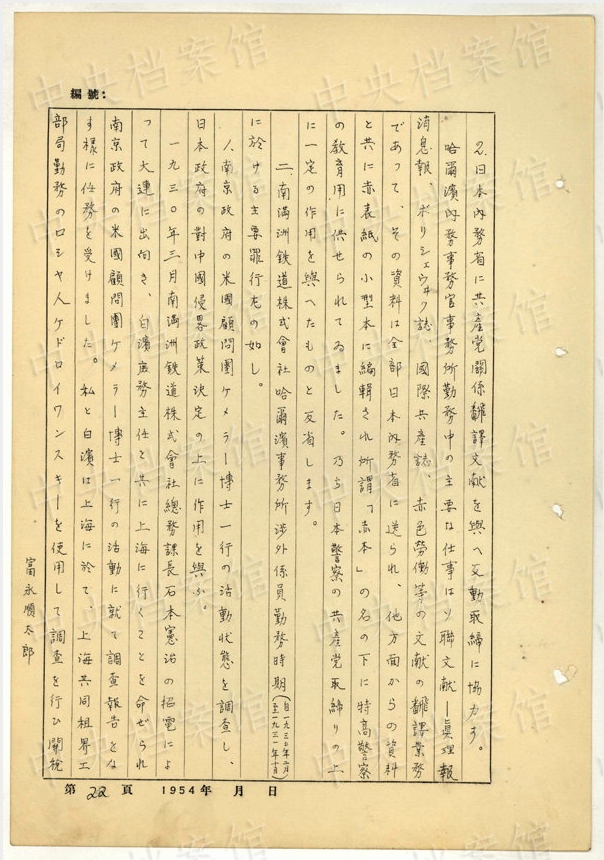 編號:
2.日本內務省に共產党關係飜譯文献を與へ又動取締に協力す。
哈爾濱內務事務官事務所勤務中の主要な仕事はソ聯文献—眞理報
消息報、ボリシェヴヰク誌、國際共產誌、赤色勞働等の文献の飜譯業務
であって、その資料は全部日本內務省に送られ、他方面からの資料
と共に赤表紙の小型本に編輯され所謂「赤本」の名の下に特高警察
の教育用に供せられてゐました。乃ち日本警察の共產党取締りの上
に一定の作用を與へたものと反省します。
二、南滿洲鉄道株式會社哈爾濱事務所涉外係員勤務時期(自一九三〇年 月至一九三一年 月)
に於ける主要罪行左の如し。
1.南京政府の米國顧問團ケメラー博士一行の活動狀態を調查し、
日本政府の對中國侵畧政策決定の上に作用を與ふ。
一九三〇年三月南滿洲鉄道株式會社總務課長石本憲治の招電によ
って大連に出向き、白濱庶務主任と共に上海に行くことを命ぜられ
南京政府の米國顧問團ケメラー博士一行の活動に就て調查報告とな
す樣に任務を受けました。私と白濱は上海に於て、上海共同租界工
部局勤務のロシヤ人ケドロイワンスキーを使用して調查を行ひ關稅
富永順太郎
第22頁 1954年 月 日
中央档案馆